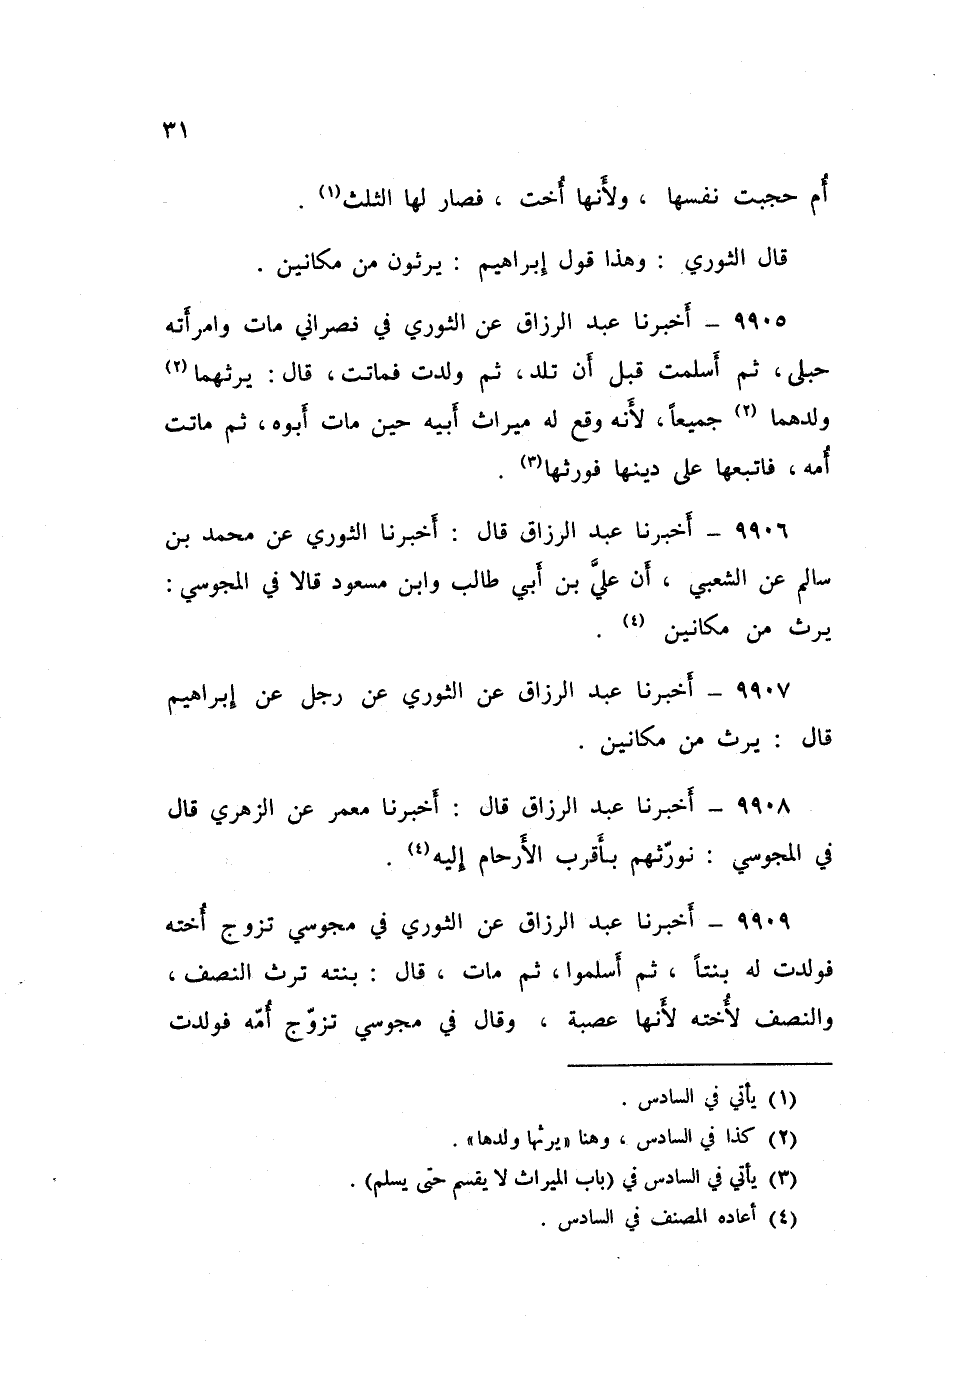 ٣١
أُم حجبت نفسها ، ولأَنها أُخت ، فصار لها الثلث(١) .
قال الثوري : وهذا قول إبراهيم : يرثون من مكانين .
٩٩٠٥ – أَخبرنا عبد الرزاق عن الثوري في نصراني مات وامرأَته
حبلى، ثم أَسلمت قبل أَن تلد، ثم ولدت فماتت، قال : يرثهما(٢)
ولدهما (٢) جميعاً، لأَنه وقع له ميراث أَبيه حين مات أَبوه، ثم ماتت
أُمه، فاتبعها على دينها فورثها(٣) .
٩٩٠٦ – أَخبرنا عبد الرزاق قال : أَخبرنا الثوري عن محمد بن
سالم عن الشعبي ، أَن عليَّ بن أَبي طالب وابن مسعود قالا في المجوسي :
يرث من مكانين (٤) .
٩٩٠٧ – أَخبرنا عبد الرزاق عن الثوري عن رجل عن إبراهيم
قال : يرث من مكانين .
٩٩٠٨ – أَخبرنا عبد الرزاق قال : أَخبرنا معمر عن الزهري قال
في المجوسي : نورّثهم بأَقرب الأَرحام إليه(٤) .
٩٩٠٩ – أَخبرنا عبد الرزاق عن الثوري في مجوسي تزوج أُخته
فولدت له بنتاً ، ثم أَسلموا، ثم مات ، قال : بنته ترث النصف،
والنصف لأُخته لأَنها عصبة ، وقال في مجوسي تزوّج أُمّه فولدت
(١) يأتي في السادس .
(٢) كذا في السادس ، وهنا «يرثها ولدها» .
(٣) يأتي في السادس في (باب الميراث لا يقسم حتى يسلم) .
(٤) أعاده المصنف في السادس .